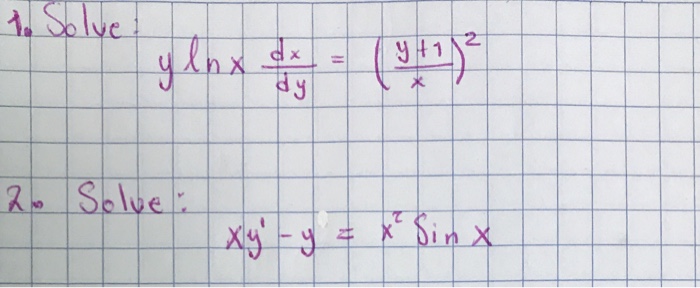 1. Solve:
y ln x dx/dy = ((y+1)/x)²
2. Solve:
xy' - y = x² Sin x